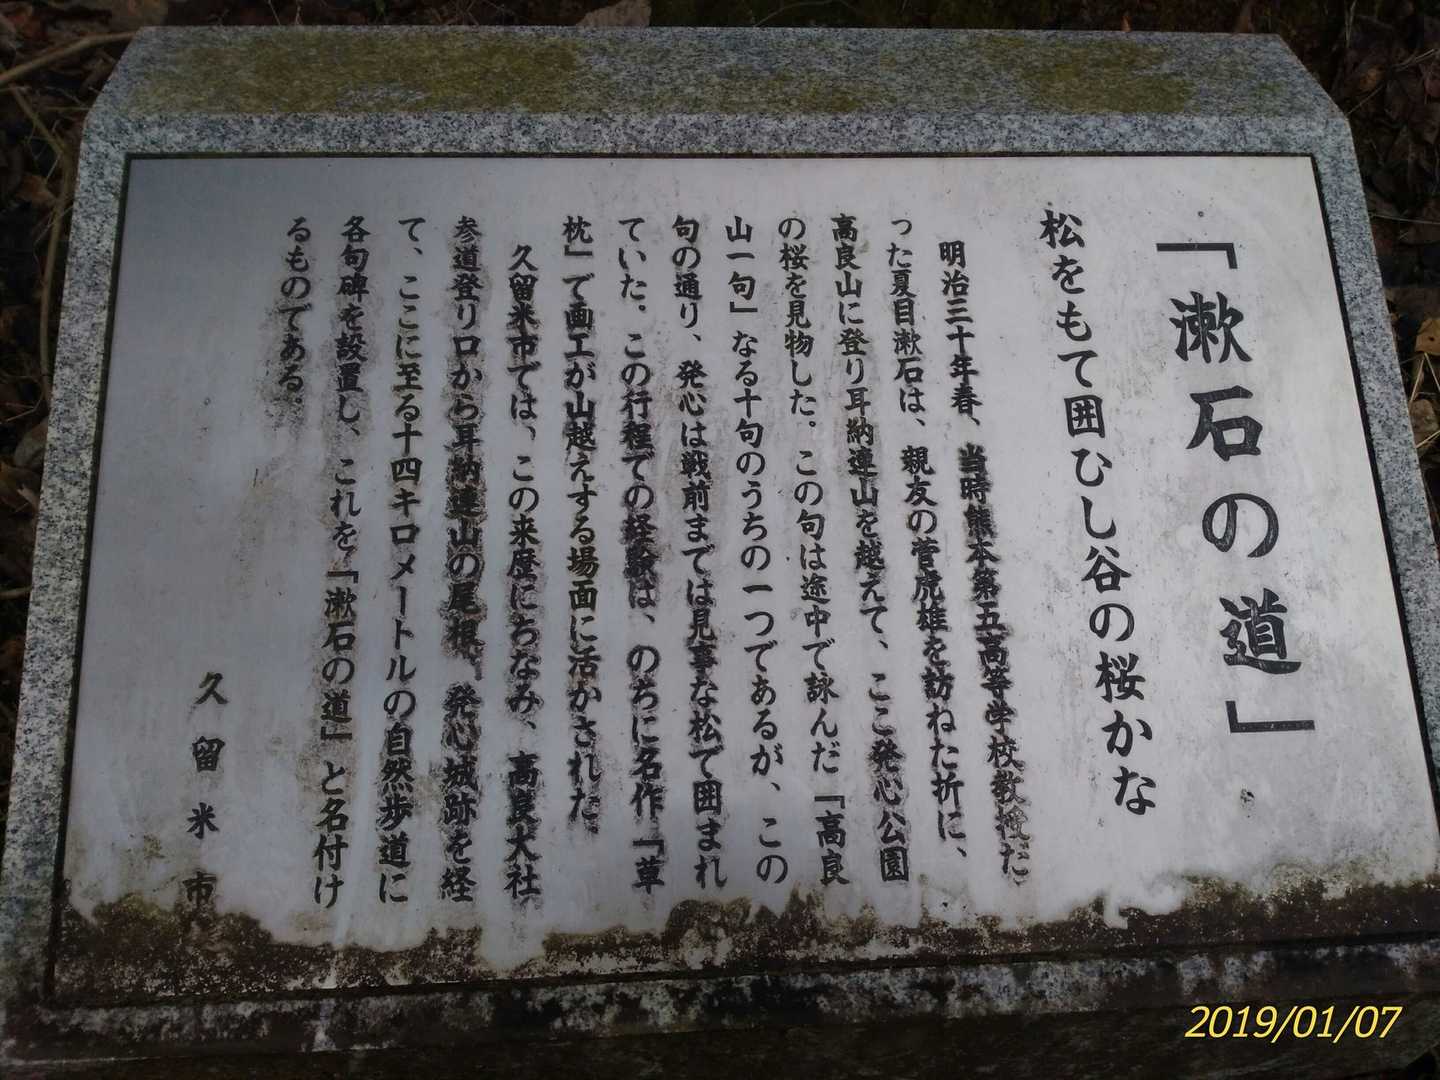 「漱石の道」
松をもて囲むし谷の桜かな
明治三十年春、当時熊本第五高等学校教授だ
った夏目漱石は、親友の菅虎雄を訪ねた折に、
高良山に登り耳納連山を越えて、ここ発心公園
の桜を見物した。この句は途中で詠んだ「高良
山一句」なる十句のうちの一つであるが、この
句の通り、発心は戦前までは見事な松で囲まれ
ていた。この行程での経験は、のちに名作「草
枕」で画工が山越えする場面に活かされた。
久留米市では、この来歴にちなみ、高良大社
参道登り口から耳納連山の尾根、発心城跡を経
て、ここに至る十四キロメートルの自然歩道に
各句碑を設置し、これを「漱石の道」と名付け
るものである。
久留米市
2019/01/07